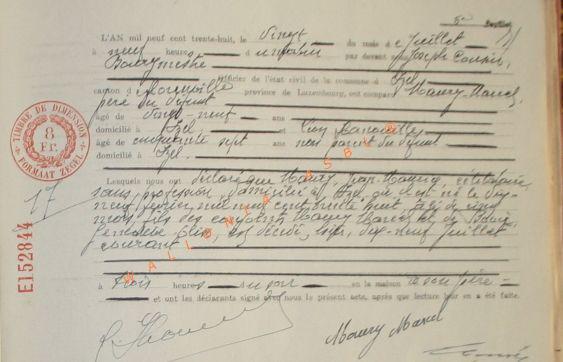 L'AN mil neuf cent trente-huit, le vingt du mois de Juillet
à neuf heures du matin par devant nous Joseph
Bourgmestre Officier de l'état civil de la commune d'Izel
canton de province de Luxembourg, ont comparu Maury Marcel,
père du défunt
âgé de vingt-neuf ans
domicilié à Izel et
âgé de cinquante sept ans non parent du défunt
domicilié à Izel.
Lesquels nous ont déclaré que Maury, Jean, célibataire,
sans profession, domicilié à Izel, où il est né le dix-
neuf février mil neuf cent trente huit, âgé de cinq
mois, fils des conjoints Maury Marcel et de
est décédé, hier, dix-neuf Juillet
courant
à trois heures du soir en la maison de son père
et ont les déclarants signé avec nous le présent acte, après que lecture leur en a été faite.
Maury Marcel
TIMBRE DE DIMENSION
8
Fr.
FORMAAT ZEGEL
17
E152844
WALLONIA ASBL ©